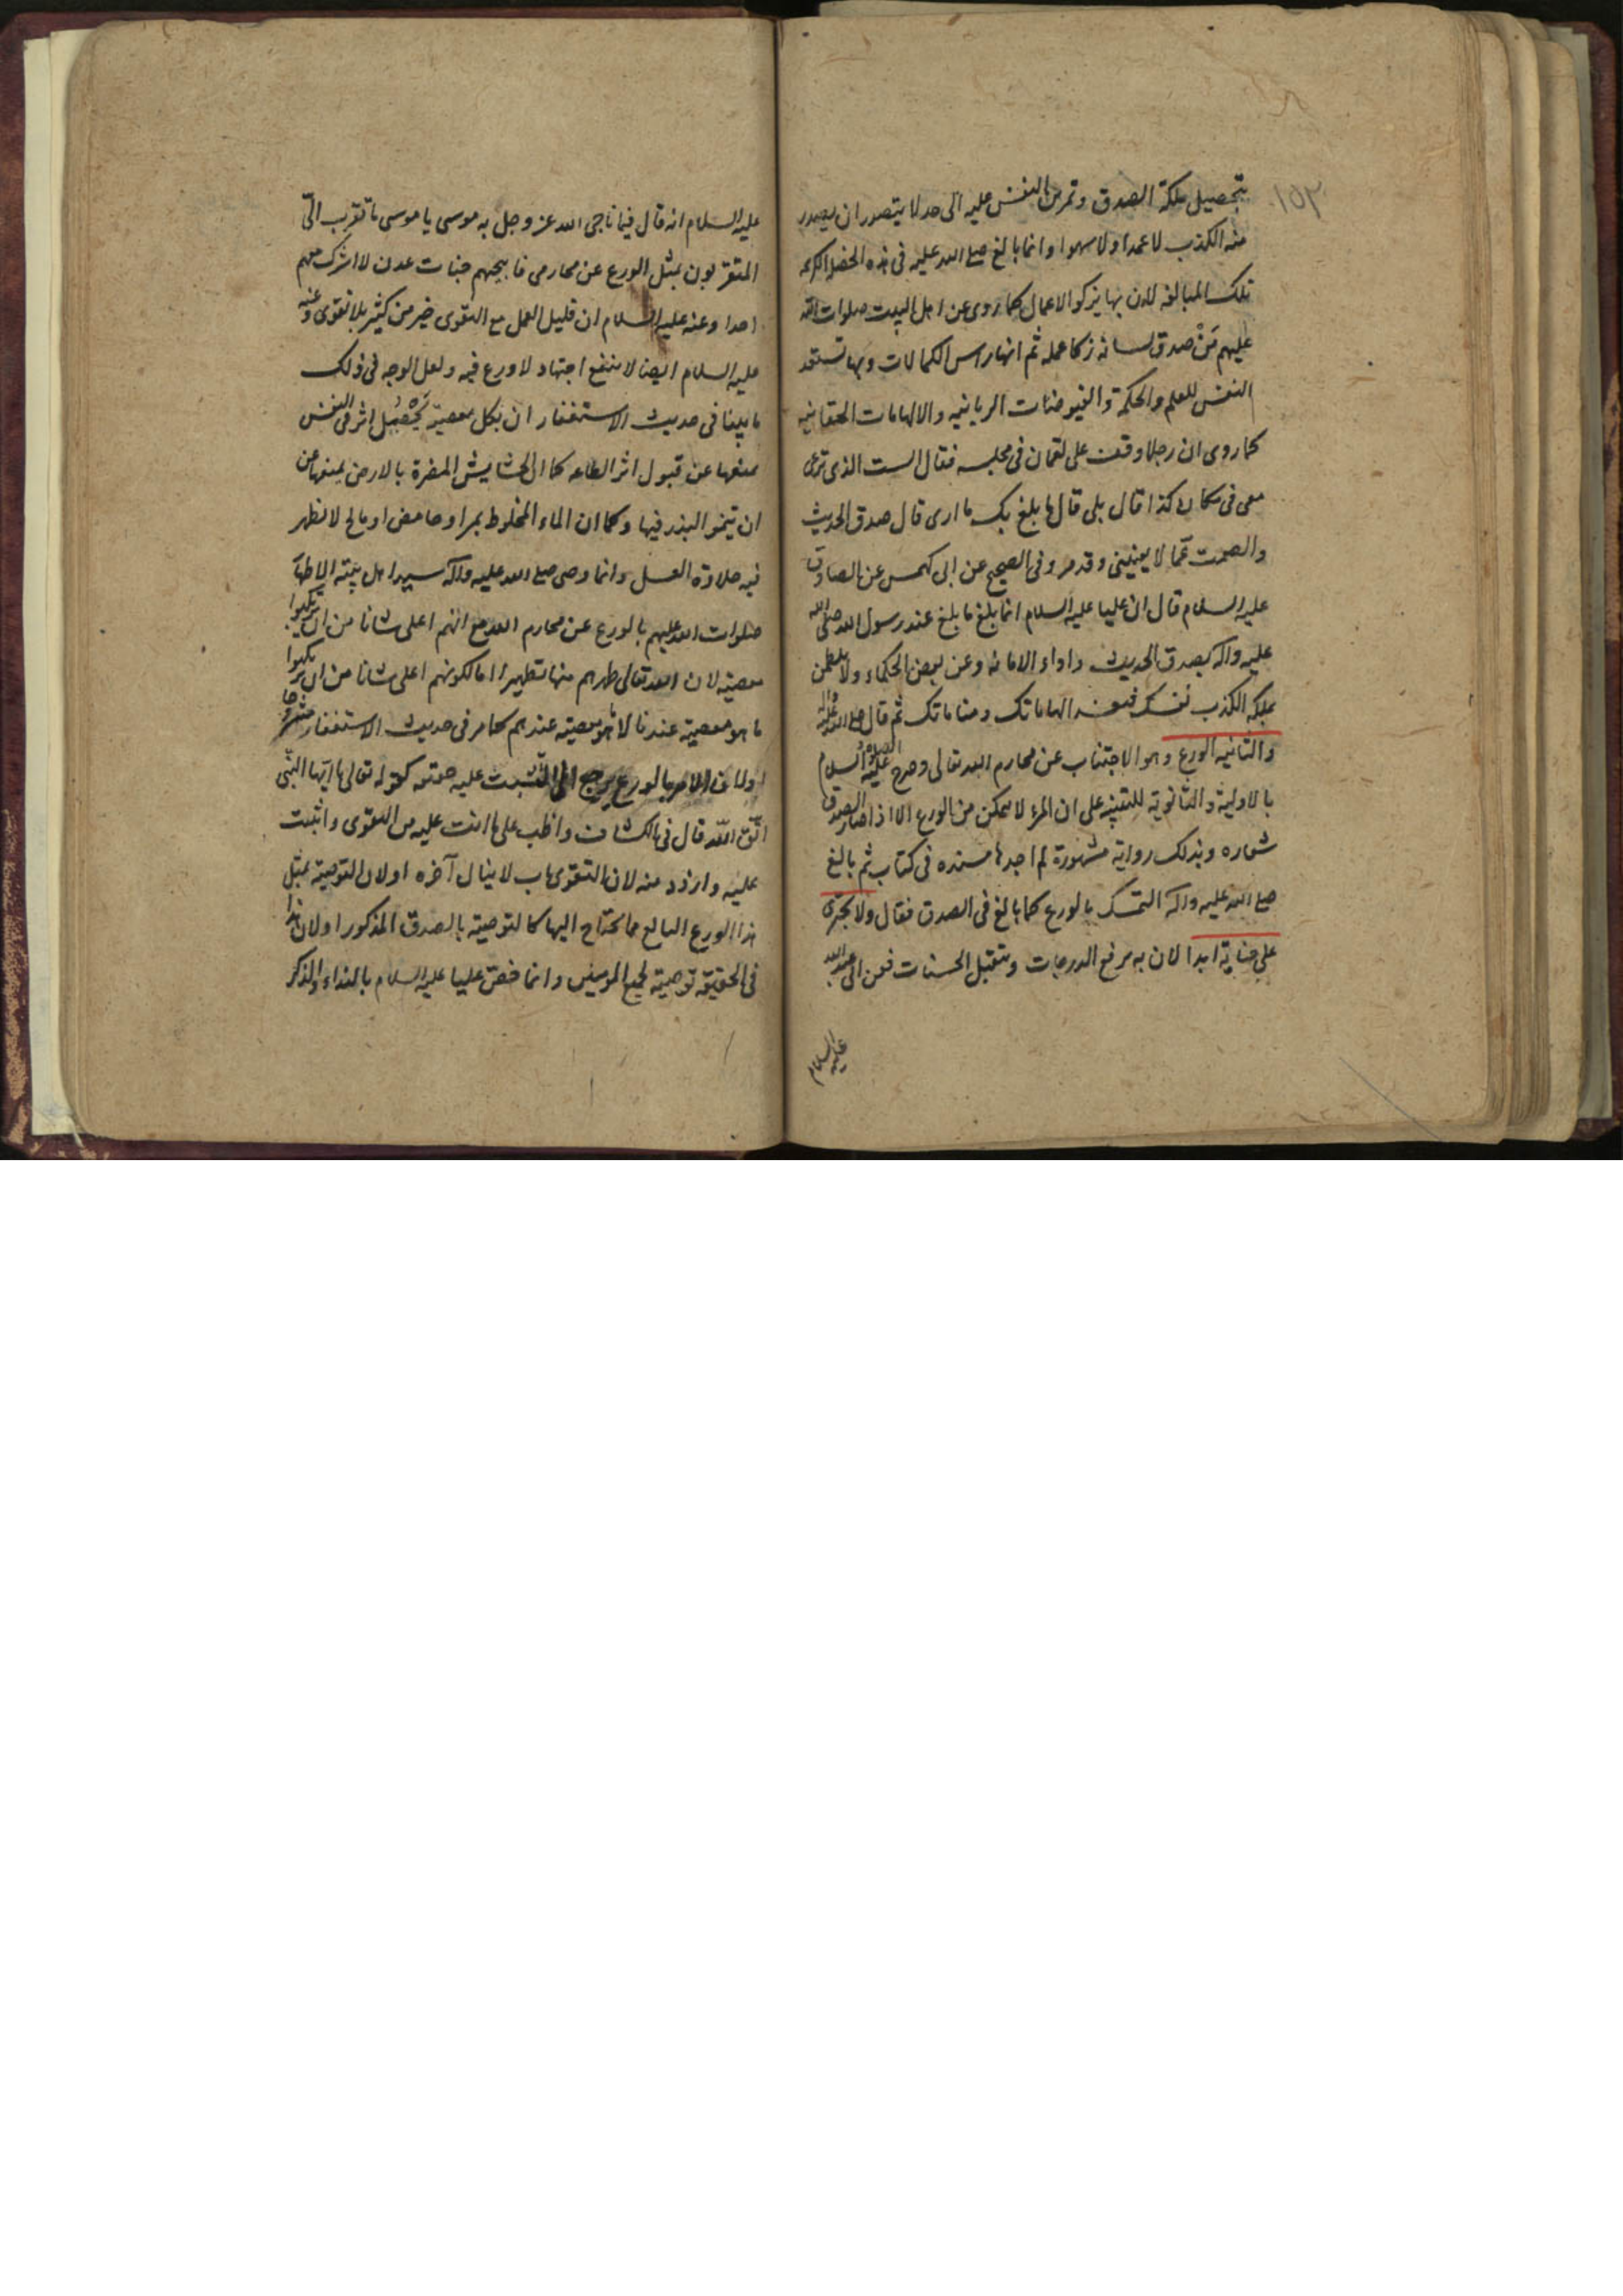 ١٥٣
بتحصيل ملكة الصدق وتمرن النفس عليه الى حد لا يتصور ان يصدر
منه الكذب لا عمدا ولا سهوا وانما بالغ صلع الله عليه فى هذه الخصلة الكريمة
تلك المبالغه لان بها يزكو الاعمال كما روى عن اهل البيت صلوات الله
عليهم مَنْ صدق لسانه زكا عمله ثم انها راس الكمالات وبها تستعد
النفس للعلم والحكمة والفيوضات الربانيه والالهامات الحقانيه
كما روى ان رجلا وقف على لقمان فى مجلسه فقال الست الذى ترعى
معى فى مكان كذا قال بلى قال ما بلغ بك ما ارى قال صدق الحديث
والصمت عمّا لا يعنينى وقد مر وفى الصحيح عن ابى كهمس عن الصادق
عليه السلام قال ان عليا عليه السلام انما بلغ ما بلغ عند رسول الله صلى الله
عليه واله بصدق الحديث واداء الامانه وعن بعض الحكماء ولا
بملكه الكذب نفسك الهاماتك ومناماتك ثم قال صلع الله عليه واله
والثانيه الورع وهو الاجتناب عن محارم الله تعالى وصرح عليه الصلوة والسلام
بالاولية والثانوية للتنبيه على ان المرء لا يمكن من الورع الا اذا صار الصدق
شعاره وبذلك رواية مشهورة لم اجدها مسنده فى كتاب ثم بالغ
صلع الله عليه واله التمسك بالورع كما بالغ فى الصدق فقال ولا تجترئ
على خيانة ابدا لان به يرفع الدرجات وتتقبل الحسنات فعن ابى عبد الله
عليه السلام
عليه السلام انه قال فيما ناجى الله عز وجل به موسى يا موسى ما تقرب الىّ
المتقربون بمثل الورع عن محارمى فابيحهم جنات عدن لا اشرك معهم
احدا وعنه عليه السلام ان قليل العمل مع التقوى خير من كثير بلا تقوى وعنه
عليه السلام ايضا لا ينفع اجتهاد لا ورع فيه ولعل الوجه فى ذلك
ما بينا فى حديث الاستغفار ان بكل معصية يَحْصُل اثر فى النفس
يمنعها عن قبول اثر الطاعه كما ان الحشايش المضرة بالارض يمنعها من
ان تينمو البذر فيها وكما ان الماء المخلوط بمر او حامض او مالح لا تظهر
فيه حلاوة العسل وانما وصى صلع الله عليه واله سيد اهل بيته الاطهار
صلوات الله عليهم بالورع عن محارم الله مع انهم اعلى شانا من ان يرتكبوا
معصية لان الله تعالى طهرهم منها تطهيرا اما لكونهم اعلى شانا من ان يرتكبوا
ما هو معصية عندنا لا ما هو معصية عندهم كما مر فى حديث الاستغفار
او لان الامر بالورع يرجع الى التثبت عليه كقوله تعالى يا ايها النبى
اتّق اللّه قال فى الكشاف واظب على ما انت عليه من التقوى واثبت
عليه وازدد منه لان التقوى باب لا ينال آخره او لان التوصية بمثل
هذا الورع البالغ مما يحتاج اليها كالتوصية بالصدق المذكور او لان هذا
فى الحقيقة توصية لجميع المومنين وانما خصّ عليا عليه السلام بالنداء والذكر